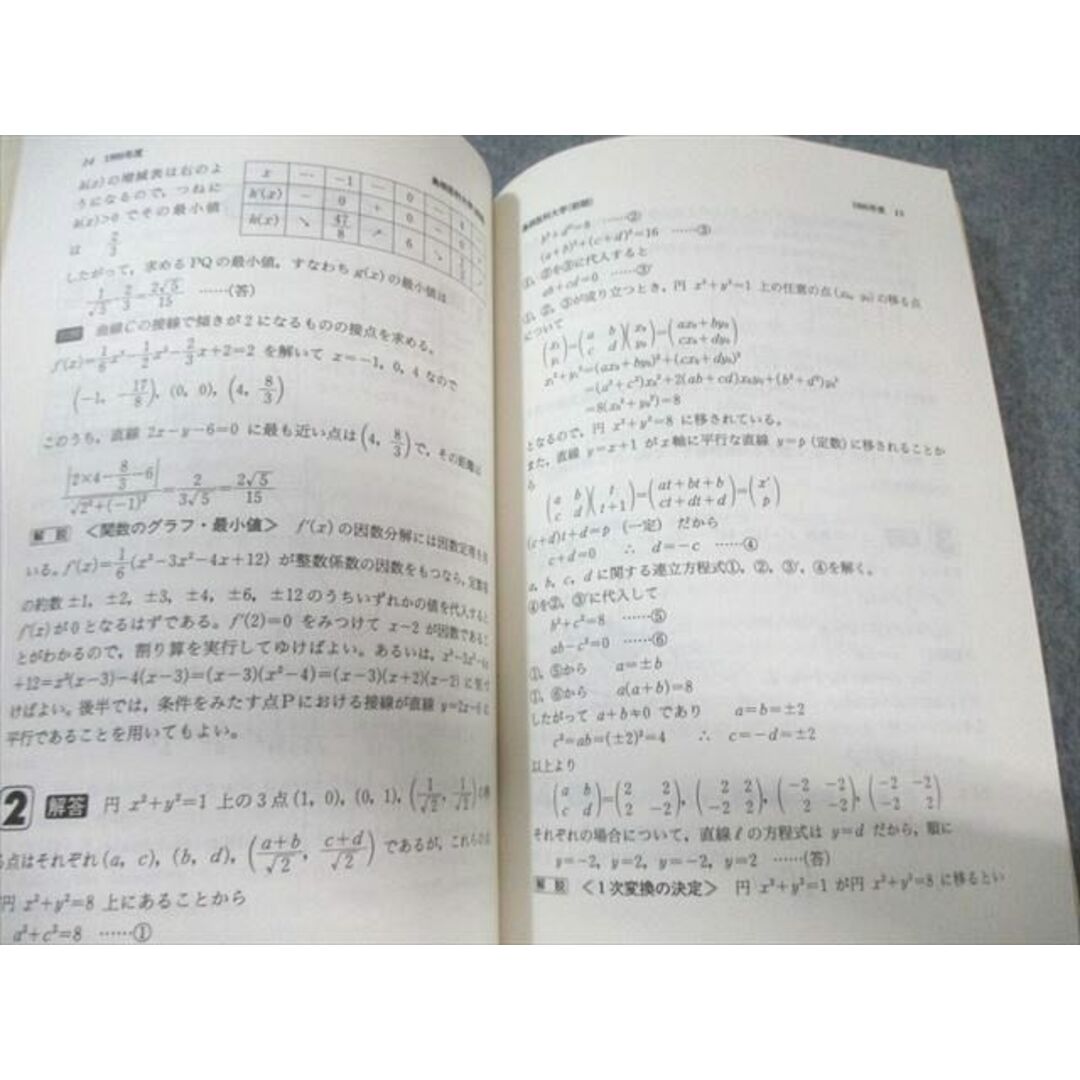 14 1989年度
h(x)の増減表は右のよ
うになるので，つねに
h(x)>0 でその最小値
は 2/3
x … -1 … 0 … 1
h'(x) - 0 + 0 - 0
h(x) ↘ 47/8 ↗ 6 ↘
したがって，求めるPQの最小値，すなわち g(x) の最小値は
1/√5・2/3=2√5/15 ……(答)
曲線Cの接線で傾きが2になるものの接点を求める。
x+2=2 を解いて x=-1, 0, 4 なので
(-1, -17/8), (0, 0), (4, 8/3)
このうち，直線 2x-y-6=0 に最も近い点は (4, 8/3) で，その距離は
|2×4-8/3-6|/√2²+(-1)²=2/3√5=2√5/15
解説 〈関数のグラフ・最小値〉 f'(x) の因数分解には因数定理を用
いる。f'(x)=1/6(x³-3x²-4x+12) が整数係数の因数をもつなら，定数項
の約数 ±1, ±2, ±3, ±4, ±6, ±12 のうちいずれかの値を代入すると
f'(x) が0となるはずである。f'(2)=0 をみつけて x-2 が因数であるこ
とがわかるので，割り算を実行してゆけばよい。あるいは，x³-3x²-4x
+12=x²(x-3)-4(x-3)=(x-3)(x²-4)=(x-3)(x+2)(x-2) に気づ
けばよい。後半では，条件をみたす点Pにおける接線が直線 y=2x-6 に
平行であることを用いてもよい。
2 解答 円 x²+y²=1 上の3点(1, 0), (0, 1), (1/√2, 1/√2) の
る点はそれぞれ(a, c), (b, d), (a+b/√2, c+d/√2) であるが，これらの
円 x²+y²=8 上にあることから
a²+c²=8 ……①
1989年度 15
b²+d²=8 ……②
(a+b)²+(c+d)²=16 ……③
①，②を③に代入すると
ab+cd=0 ……③'
①，②，③が成り立つとき，円 x²+y²=1 上の任意の点(x₀, y₀)の移る点
について
(x₁ y₁)=(a b c d)(x₀ y₀)=(ax₀+by₀ cx₀+dy₀)
x₁²+y₁²=(ax₀+by₀)²+(cx₀+dy₀)²
=(a²+c²)x₀²+2(ab+cd)x₀y₀+(b²+d²)y₀²
=8(x₀²+y₀²)=8
となるので，円 x²+y²=8 に移されている。
また，直線 y=x+1 が x軸に平行な直線 y=p (定数)に移されることか
ら
(a b c d)(t t+1)=(at+bt+b ct+dt+d)=(x' p)
(c+d)t+d=p (一定) だから
c+d=0 ∴ d=-c ……④
a, b, c, d に関する連立方程式①，②，③'，④を解く。
④を②，③'に代入して
b²+c²=8 ……⑤
ab-c²=0 ……⑥
①，⑤から a=±b
①，⑥から a(a+b)=8
したがって a+b≠0 であり a=b=±2
c²=ab=(±2)²=4 ∴ c=-d=±2
以上より
(a b c d)=(2 2 2 -2), (2 2 -2 2), (-2 -2 2 -2), (-2 -2 -2 2)
それぞれの場合について，直線ℓの方程式は y=d だから，順に
y=-2, y=2, y=-2, y=2 ……(答)
解説 〈1次変換の決定〉 円 x²+y²=1 が円 x²+y²=8 に移るとい